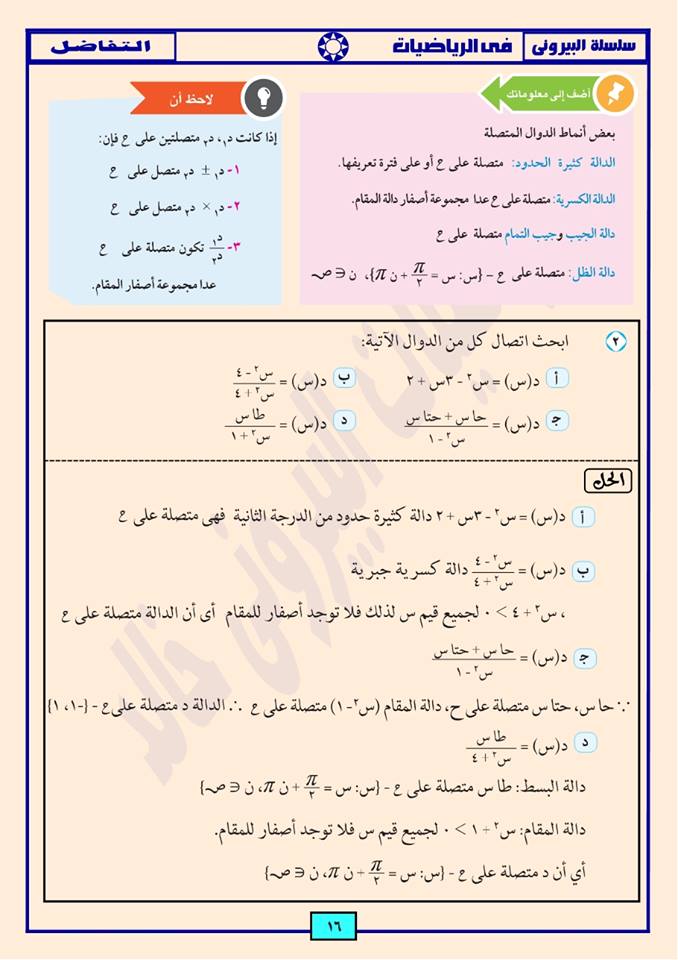 سلسلة البيرونى
فى الرياضيات
التفاضل
أضف إلى معلوماتك
بعض أنماط الدوال المتصلة
الدالة كثيرة الحدود: متصلة على ع أو على فترة تعريفها.
الدالة الكسرية: متصلة على ع عدا مجموعة أصفار دالة المقام.
دالة الجيب وجيب التمام متصلة على ع
دالة الظل: متصلة على ع - {س: س = π/٢ + ن π}، ن ∈ ص
لاحظ أن
إذا كانت د١، د٢ متصلتين على ع فإن:
١- د١ ± د٢ متصل على ع
٢- د١ × د٢ متصل على ع
٣- د١/د٢ تكون متصلة على ع
عدا مجموعة أصفار المقام.
٢ ابحث اتصال كل من الدوال الآتية:
أ د(س) = س٢ - ٣س + ٢
ب د(س) = (س٢ - ٤)/(س٢ + ٤)
ج د(س) = (حا س + حتا س)/(س٢ - ١)
د د(س) = (طا س)/(س٢ + ١)
الحل
أ د(س) = س٢ - ٣س + ٢ دالة كثيرة حدود من الدرجة الثانية فهى متصلة على ع
ب د(س) = (س٢ - ٤)/(س٢ + ٤) دالة كسرية جبرية
، س٢ + ٤ > ٠ لجميع قيم س لذلك فلا توجد أصفار للمقام أى أن الدالة متصلة على ع
ج د(س) = (حا س + حتا س)/(س٢ - ١)
∵ حا س، حتا س متصلة على ح، دالة المقام (س٢ - ١) متصلة على ع ∴ الدالة د متصلة على ع - {-١، ١}
د د(س) = (طا س)/(س٢ + ٤)
دالة البسط: طا س متصلة على ع - {س: س = π/٢ + ن π، ن ∈ ص}
دالة المقام: س٢ + ١ > ٠ لجميع قيم س فلا توجد أصفار للمقام.
أي أن د متصلة على ع - {س: س = π/٢ + ن π، ن ∈ ص}
١٦